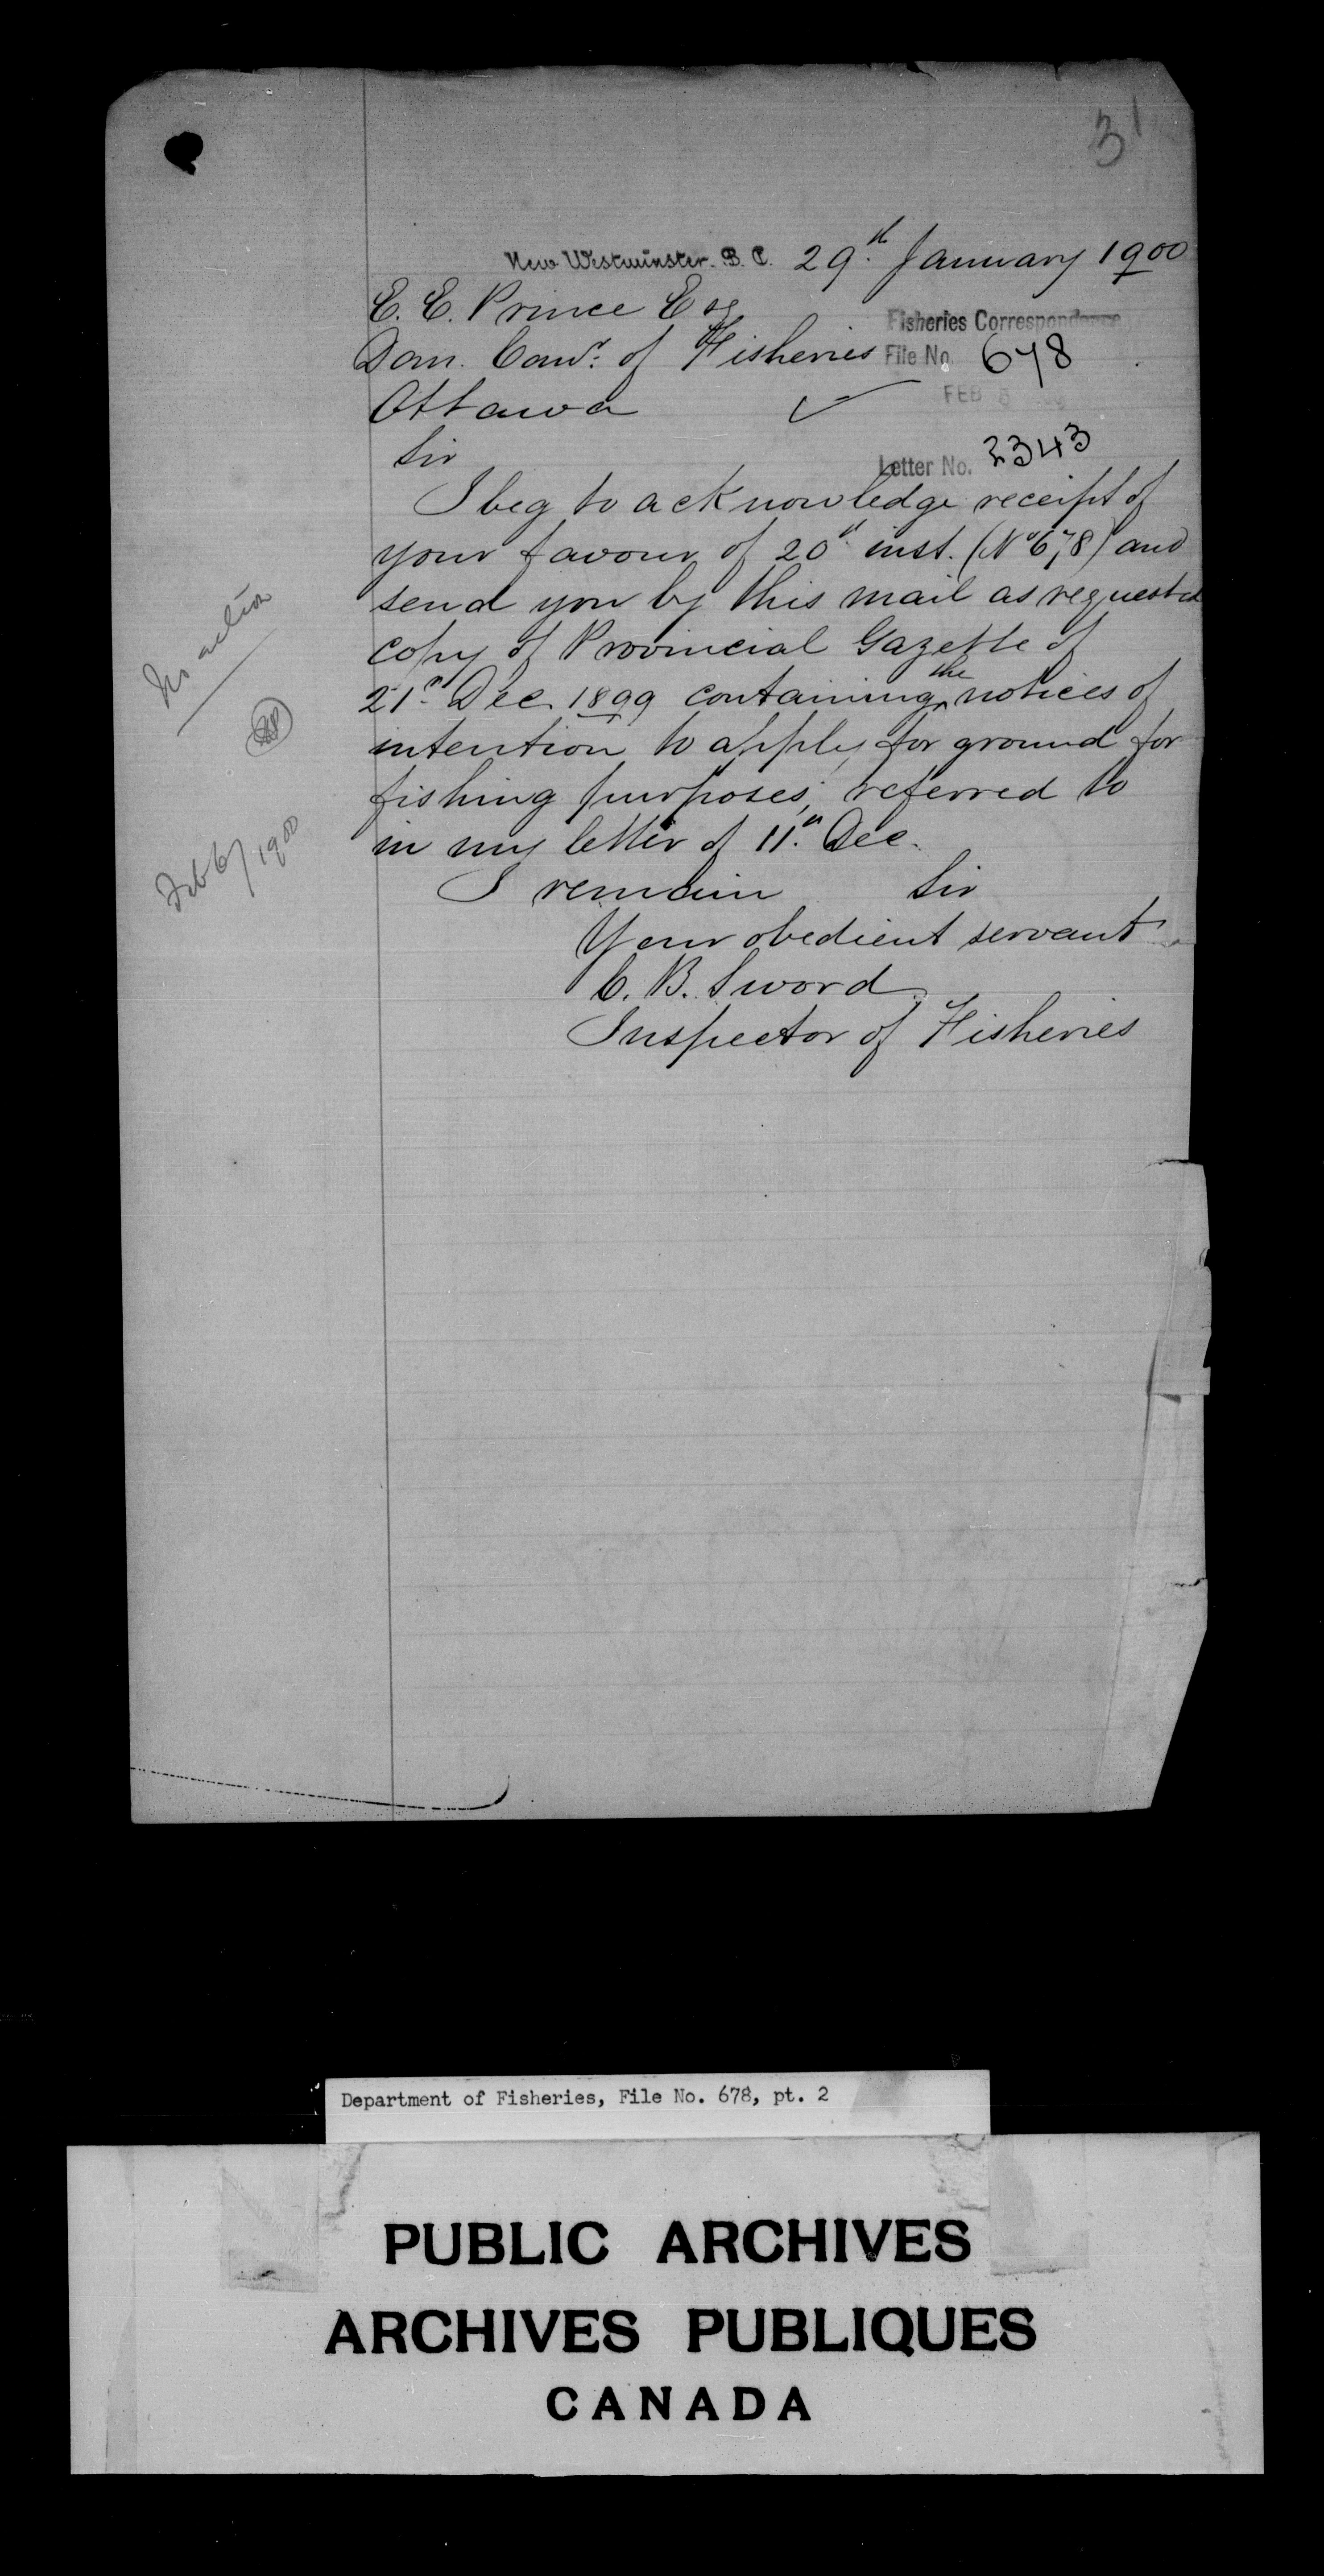 31
New Westminster. B. C. 29th January 1900
E. E. Prince Esq
Dom. Comr. of Fisheries
Ottawa
Fisheries Correspondence
File No. 678
FEB 5
Letter No. 2343
Sir
I beg to acknowledge receipt of
your favour of 20th inst. (No 678) and
send you by this mail as requested
copy of Provincial Gazette of
21st Dec 1899 containing the notices of
intention to apply for ground for
fishing purposes, referred to
in my letter of 11th Dec.
I remain Sir
Your obedient servant
C. B. Sword
Inspector of Fisheries
No action
Feb 6/1900
Department of Fisheries, File No. 678, pt. 2
PUBLIC ARCHIVES
ARCHIVES PUBLIQUES
CANADA